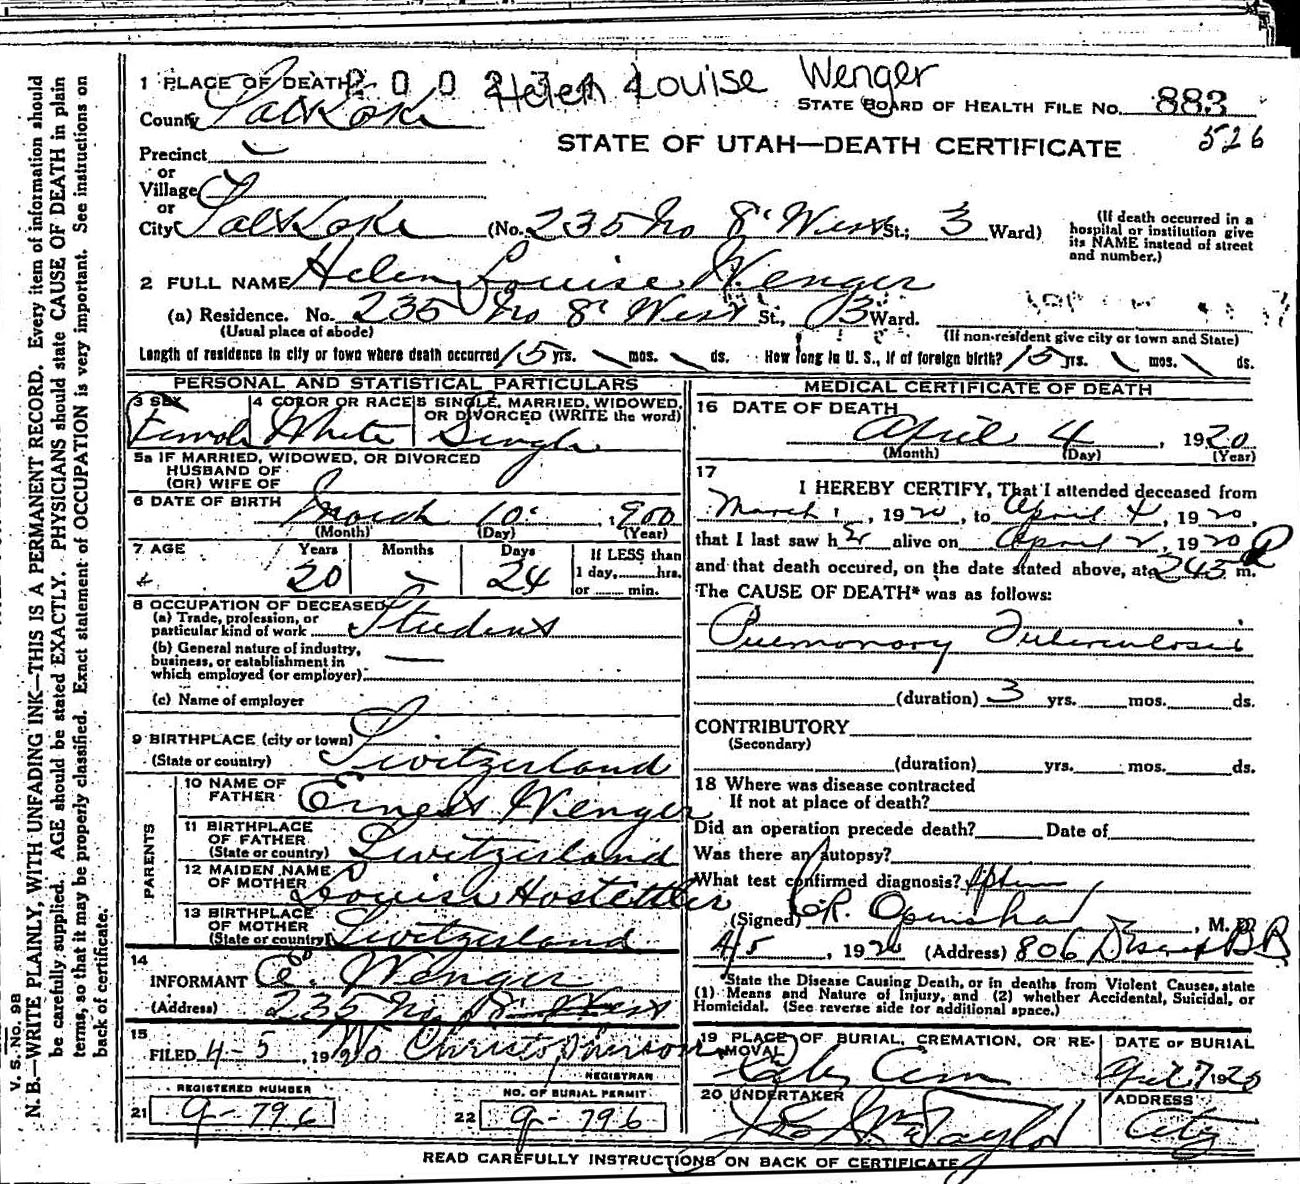 V. S. No. 9B
N. B.—WRITE PLAINLY, WITH UNFADING INK—THIS IS A PERMANENT RECORD. Every item of information should
be carefully supplied. AGE should be stated EXACTLY. PHYSICIANS should state CAUSE OF DEATH in plain
terms, so that it may be properly classified. Exact statement of OCCUPATION is very important. See instructions on
back of certificate.
Helen Louise Wenger
1 PLACE OF DEATH
County Salt Lake
STATE BOARD OF HEALTH FILE No. 883
526
STATE OF UTAH—DEATH CERTIFICATE
Precinct
or
Village
or
City Salt Lake (No. 235 No 8' West St.; 3 Ward)
(If death occurred in a
hospital or institution give
its NAME instead of street
and number.)
2 FULL NAME Helen Louise Wenger
(a) Residence. No. 235 No 8' West St., 3 Ward.
(Usual place of abode)
(If non-resident give city or town and State)
Length of residence in city or town where death occurred 15 yrs. mos. ds. How long in U. S., if of foreign birth? 15 yrs. mos. ds.
PERSONAL AND STATISTICAL PARTICULARS
3 SEX
Female
4 COLOR OR RACE
White
5 SINGLE, MARRIED, WIDOWED,
OR DIVORCED (WRITE the word)
Single
5a IF MARRIED, WIDOWED, OR DIVORCED
HUSBAND OF
(OR) WIFE OF
6 DATE OF BIRTH
March 10, 1900
(Month) (Day) (Year)
7 AGE
Years Months Days
20 - 24
If LESS than
1 day,......hrs.
or ...... min.
8 OCCUPATION OF DECEASED
(a) Trade, profession, or
particular kind of work Student
(b) General nature of industry,
business, or establishment in
which employed (or employer)
(c) Name of employer
9 BIRTHPLACE (city or town)
(State or country) Switzerland
PARENTS
10 NAME OF
FATHER Ernest Wenger
11 BIRTHPLACE
OF FATHER
(State or country) Switzerland
12 MAIDEN NAME
OF MOTHER Louise Hostettler
13 BIRTHPLACE
OF MOTHER
(State or country) Switzerland
14
INFORMANT E. Wenger
(Address) 235 No. 8' West
15
FILED 4-5, 1920
REGISTRAR
REGISTERED NUMBER
21 9-796
NO. OF BURIAL PERMIT
22 9-796
MEDICAL CERTIFICATE OF DEATH
16 DATE OF DEATH
April 4, 1920
(Month) (Day) (Year)
17
I HEREBY CERTIFY, That I attended deceased from
March 1, 1920, to April 4, 1920,
that I last saw her alive on April 2, 1920
and that death occured, on the date stated above, at 245 P m.
The CAUSE OF DEATH* was as follows:
Pulmonary Tuberculosis
(duration) 3 yrs. mos. ds.
CONTRIBUTORY
(Secondary)
(duration) yrs. mos. ds.
18 Where was disease contracted
If not at place of death?
Did an operation precede death? Date of
Was there an autopsy?
What test confirmed diagnosis?
(Signed) Openshaw, M. D.
4/5, 1920 (Address) 806 Deseret
*State the Disease Causing Death, or in deaths from Violent Causes, state
(1) Means and Nature of Injury, and (2) whether Accidental, Suicidal, or
Homicidal. (See reverse side for additional space.)
19 PLACE OF BURIAL, CREMATION, OR RE-
MOVAL
City Cem
DATE OF BURIAL
April 7 1920
20 UNDERTAKER
Taylor
ADDRESS
City
READ CAREFULLY INSTRUCTIONS ON BACK OF CERTIFICATE